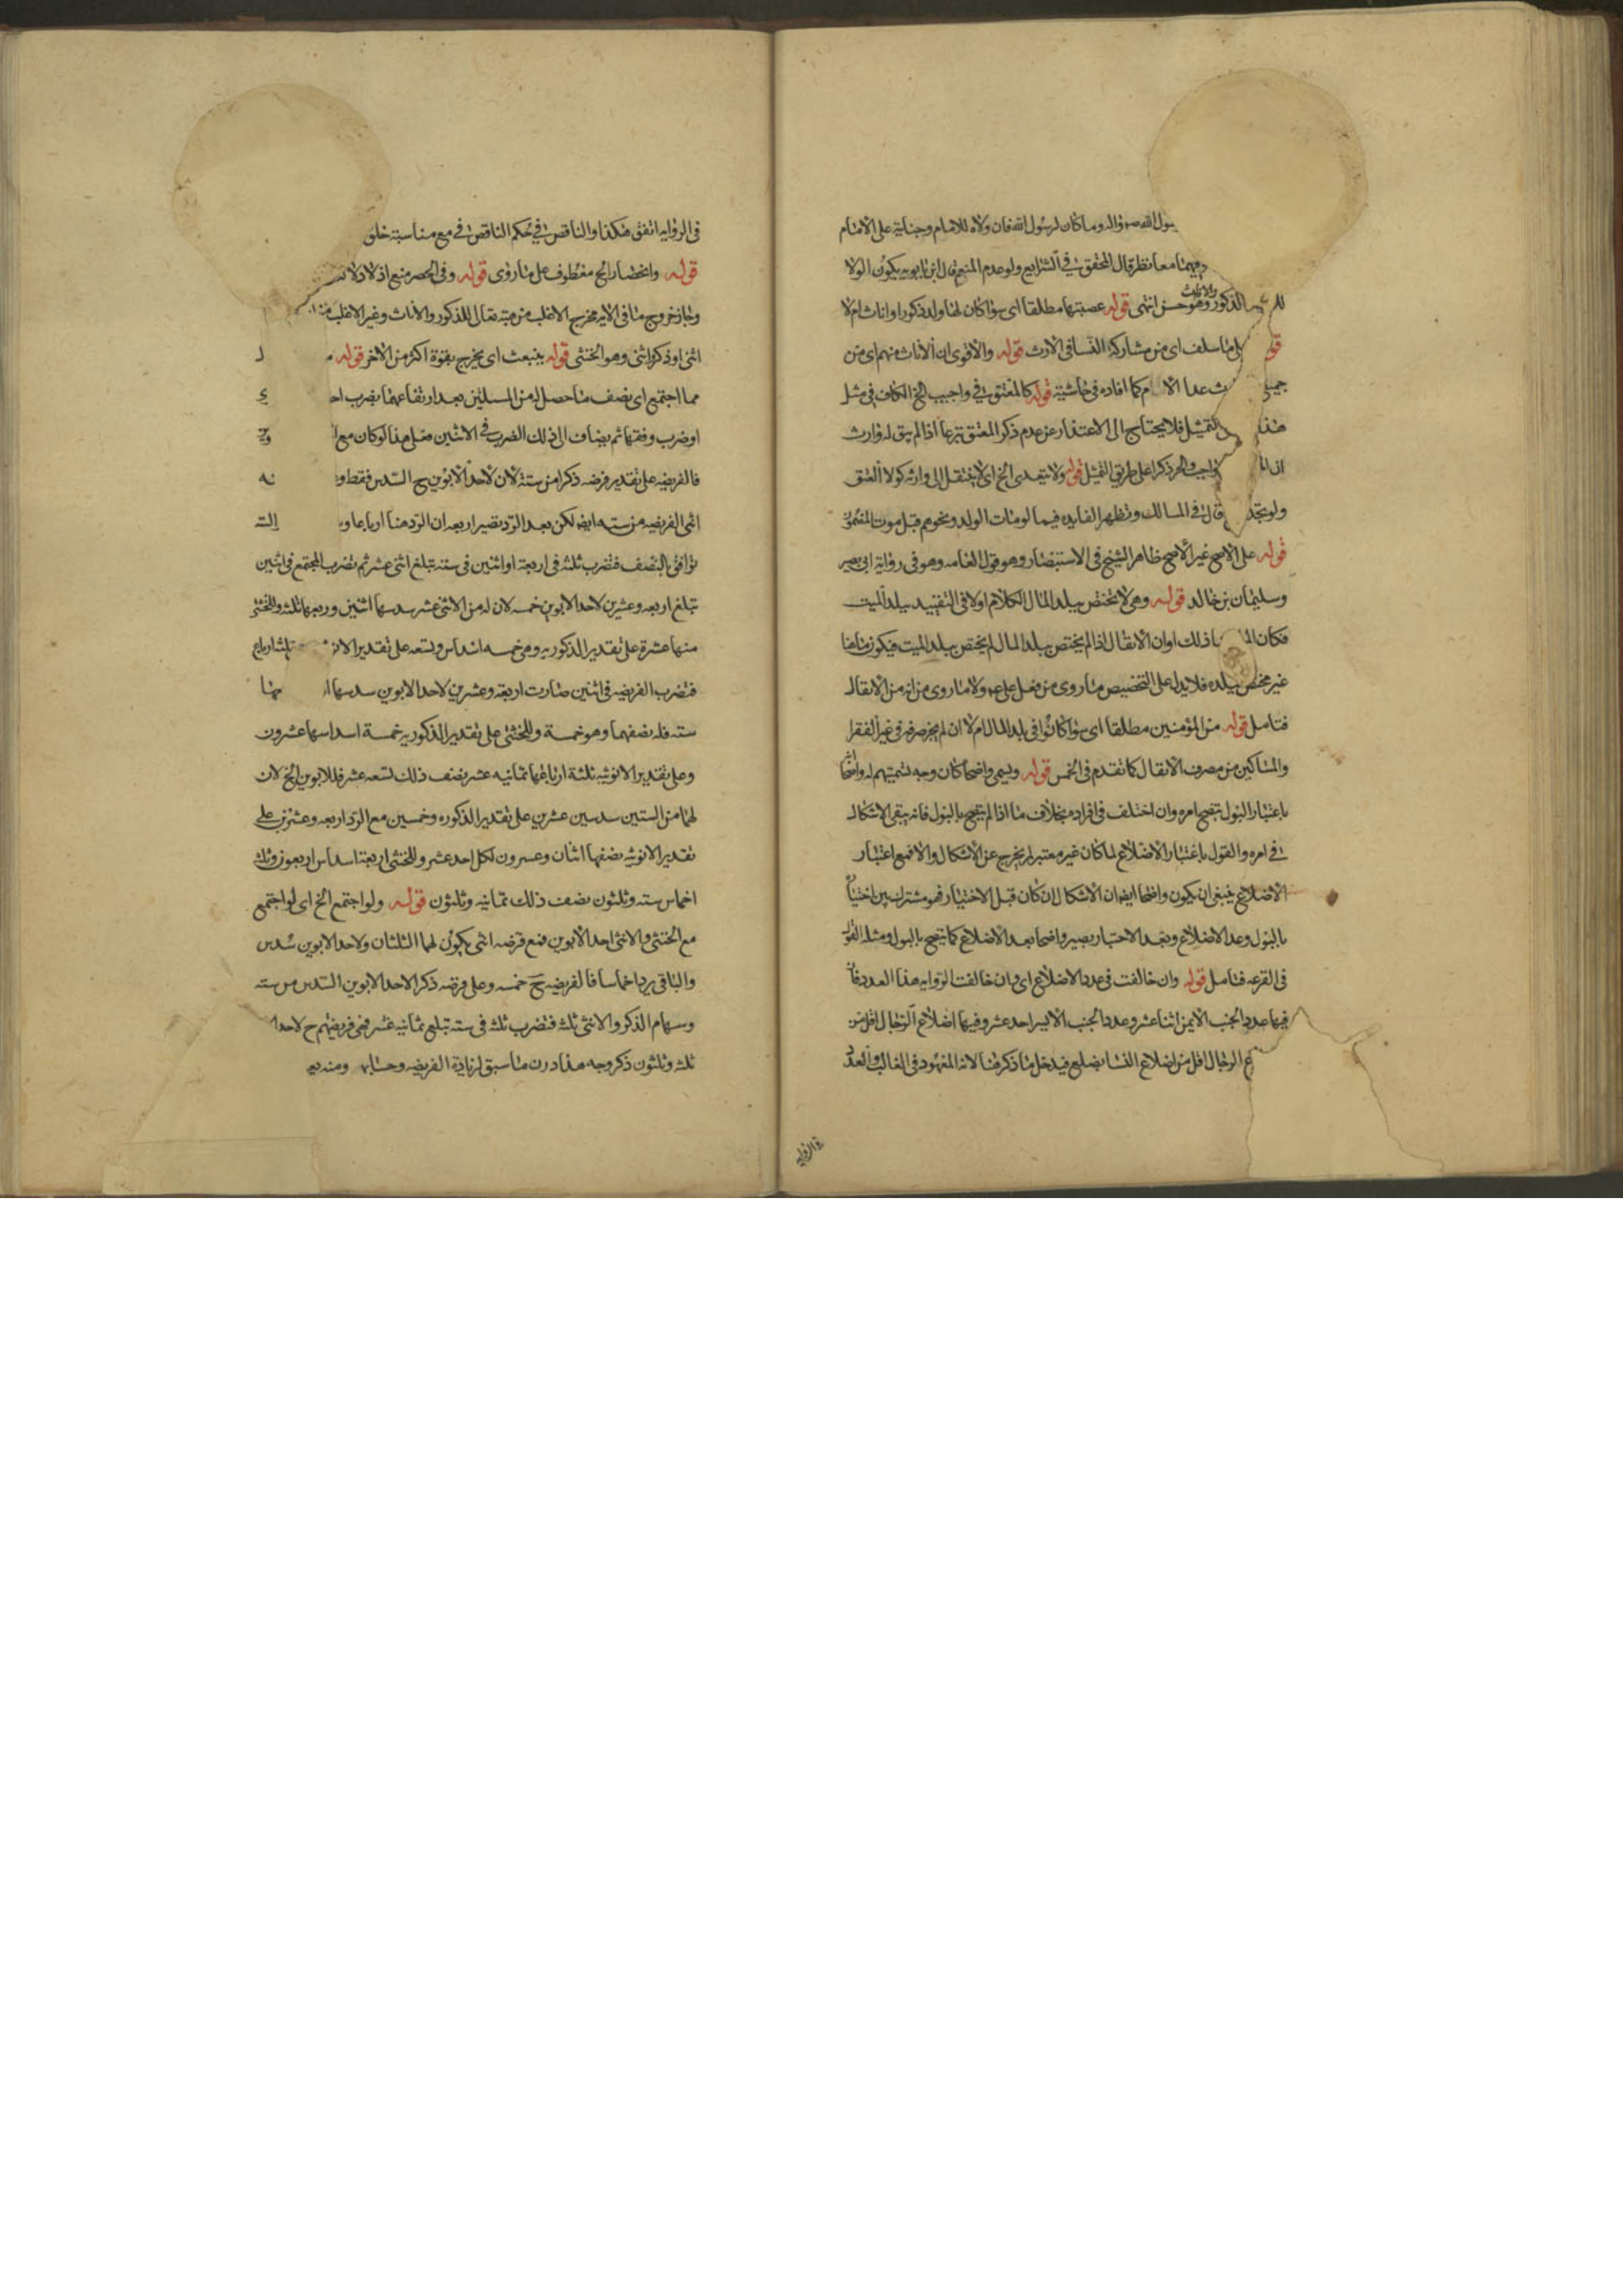 سول الله ص واله وما كان لرسول الله فان ولاه للامام وجنايته على الامام
وفيهما معا نظر قال المحقق في الشرايع ولو عدم المنعم قال ابن بابويه يكون الولا
للذكور والاناث وهو حسن انتهى قوله عصبتها مطلقا اى سوا كان لها ولد ذكورا او اناث ام لا
ما سلف اى من مشاركة النسا فى الارث قوله والاقوى ان الاناث منهم اى من
عدا الا كما افاده فى حاشيته قوله كالمعتق فى واجب الخ الكاف فى مثل
هذا التمثيل فلا يحتاج الى الاعتذار عن عدم ذكر المعتق تبرعا اذا لم يبق له وارث
واجب والحر ذكرا على طريق التمثيل قوله ولا يتعدى الخ اى لا ينتقل الى وارثه كولا العتق
ولو تجدد قال فى المسالك وتظهر الفايده فيما لو مات الولد ونحوهم قبل موت المضمون
قوله على الاصح غير الاصح ظاهر الشيخ فى الاستبصار وهو قول العامه وهو فى رواية ابى بصير
وسليمان بن خالد قوله وهى لا تختص ببلد المال الكلام اولا فى التقييد ببلد الميت
فكان ذلك اوان الانفال اذا لم يختص ببلد المال لم يختص ببلد الميت فيكون
غير مختص ببلده فلا يدل على التخصيص ما روى من فعل على ع ولا ما روى من انه من الانفال
فتامل قوله من المؤمنين مطلقا اى سوا كانوا فى بلد المال ام لا ان لم يجز صرفه فى غير الفقرا
والمساكين من مصرف الانفال كما تقدم فى الخمس قوله ويسمى واضحا كان وجه تسميتهم له واضحا
باعتبار البول تبضح امره وان اختلف فى افراده بخلاف ما اذا لم يتضح بالبول فانه يبقى الاشكال
فى امره والقول باعتبار الاضلاع لما كان غير معتبر لم يخرج عن الاشكال والا فمع اعتبار
الاضلاع ينبغى ان يكون واضحا ايضا ان الاشكال ان كان قبل الاختبار فهو مشترك بين
بالبول وعد الاضلاع وبعد الاختبار يصير واضحا بعد الاضلاع كما يتضح بالبول ومثله القول
فى القرعه فتامل قوله وان خالفت فى عدد الاضلاع اى وان خالفت الروايه هذا العدد
فيها عدد الجنب الايمن اثنا عشر وعدد الجنب الايسر احد عشر وفيها اضلاع الرجال اقل من
ع الرجال اقل من اضلاع النسا بضلع فيدخل ما ذكر هنا لانه المعهود فى الغالب والعدد
فى الروايه
فى الروايه اتفق هكذا والناقص فى حكم الناقص فى مع مناسبته خلق
قوله وانحصار الخ معطوف على ما روى قوله وفى الحصر منع اذ لا دلا
وجاز خروج ما فى الايه مخرج الاغلب من هبته تعالى للذكور والاناث وغير الاغلب
انثى او ذكر انثى وهو الخنثى قوله ينبعث اى يخرج بقوة اكثر من الاخر قوله
مما اجتمع اى نصف ما حصل له من المسئلتين بعد ارتفاعهما بضرب احد
او ضرب وفقها ثم يضاف الى ذلك الضرب فى الاثنين مثل هذا لو كان مع
فالفريضه على تقدير فرضه ذكرا من سته لان لاحد الابوين ح السدس فقط و
انثى الفريضه من سته ايضا لكن بعد الرد تصير اربعه لان الرد هنا ارباعا و الستة
توافق بالنصف فتضرب ثلثه فى اربعة او اثنين فى سته تبلغ اثنى عشر ثم تضرب المجتمع فى اثنين
تبلغ اربعه وعشرين لاحد الابوين خمسه لان له من الاثنى عشر سدسها اثنين وربعها ثلثه وللخنثى
منها عشرة على تقدير الذكوريه وهى خمسه اسداس وتسعه على تقدير الانوثية ثلثة ارباع
فتضرب الفريضه فى اثنين صارت اربعه وعشرين لاحد الابوين سدسها
سته فله نصفهما وهو خمسة وللخنثى على تقدير الذكوريه خمسة اسداسها عشرون
وعلى تقدير الانوثيه ثلثة ارباعها ثمانيه عشر نصف ذلك تسعه عشر فللابوين الخ لان
لهما من الستين سدسين عشرين على تقدير الذكوره وخمسين مع الرد اربعه وعشرين على
تقدير الانوثيه نصفها اثنان وعسرون لكل احد عشر وللخنثى اربعة اسداس اربعون وثلثه
اخماس سته وثلثون نصف ذلك ثمانيه وثلثون قوله ولو اجتمع الخ اى لو اجتمع
مع الخنثى والانثى احد الابوين فمع فرضه انثى يكون لهما الثلثان ولاحد الابوين سدس
والباقى يرد اخماسا فالفريضه ح خمسه وعلى فرضه ذكرا لاحد الابوين السدس من سته
وسهام الذكر والانثى ثلثه فتضرب ثلثه فى سته تبلغ ثمانيه عشر فهى فريضتهم ح لاحد
ثلثه وثلثون ذكر وجه هذا دون ما سبق لزيادة الفريضه وحسابه ومنه